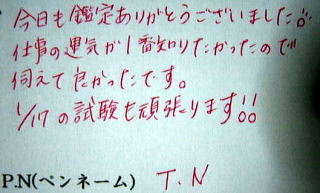 今日も鑑定ありがとうございました!!
仕事の運気が1番知りたかったので
伺えて良かったです。
1/17の試験も頑張ります!!
P.N(ペンネーム) T.N